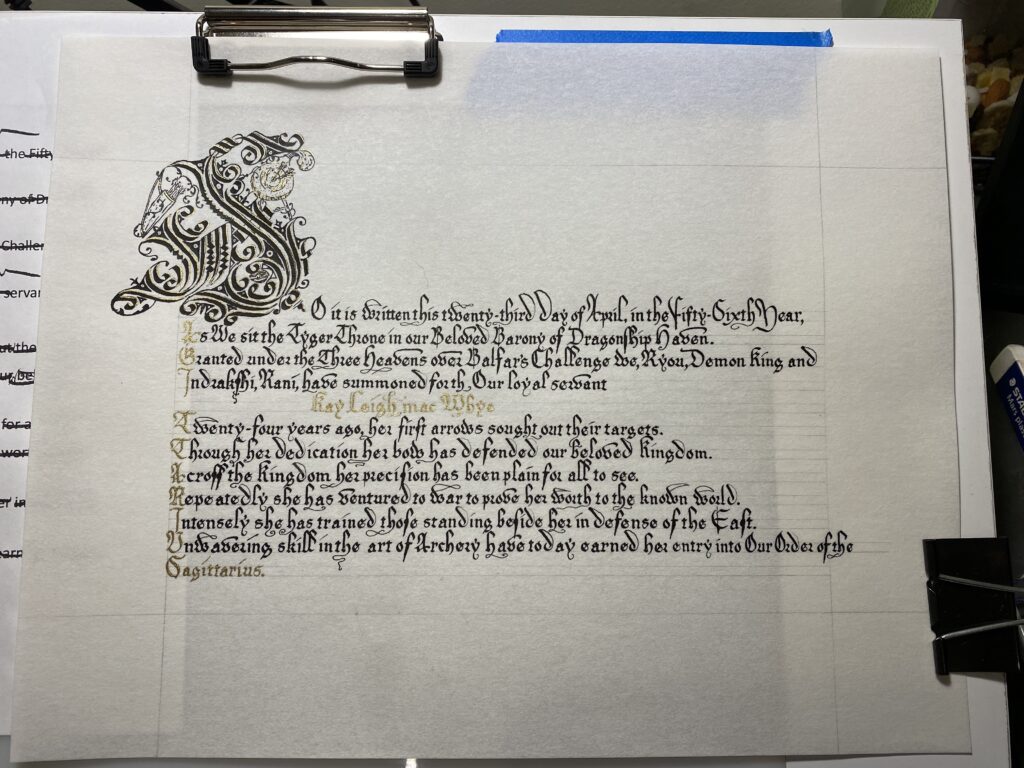 SO it is written this twenty-third Day of April, in the Fifty-Sixth Year,
As We sit the Tyger Throne in our Beloved Barony of Dragonship Haven.
Granted under the Three Heavens over Balfar's Challenge we, Ryou, Demon King and
Indrakshi, Rani, have summoned forth, Our loyal servant
Kay Leigh mac Whye
Twenty-four years ago, her first arrows sought out their targets.
Through her dedication her bow has defended our beloved Kingdom.
Acroſſ the Kingdom her precision has been plain for all to see.
Repeatedly she has ventured to war to prove her worth to the known world.
Intensely she has trained those standing beside her in defense of the East.
Unwavering skill in the art of Archery have today earned her entry into Our Order of the
Sagittarius.
the Fifty
servan
for a
STA
Mars plas